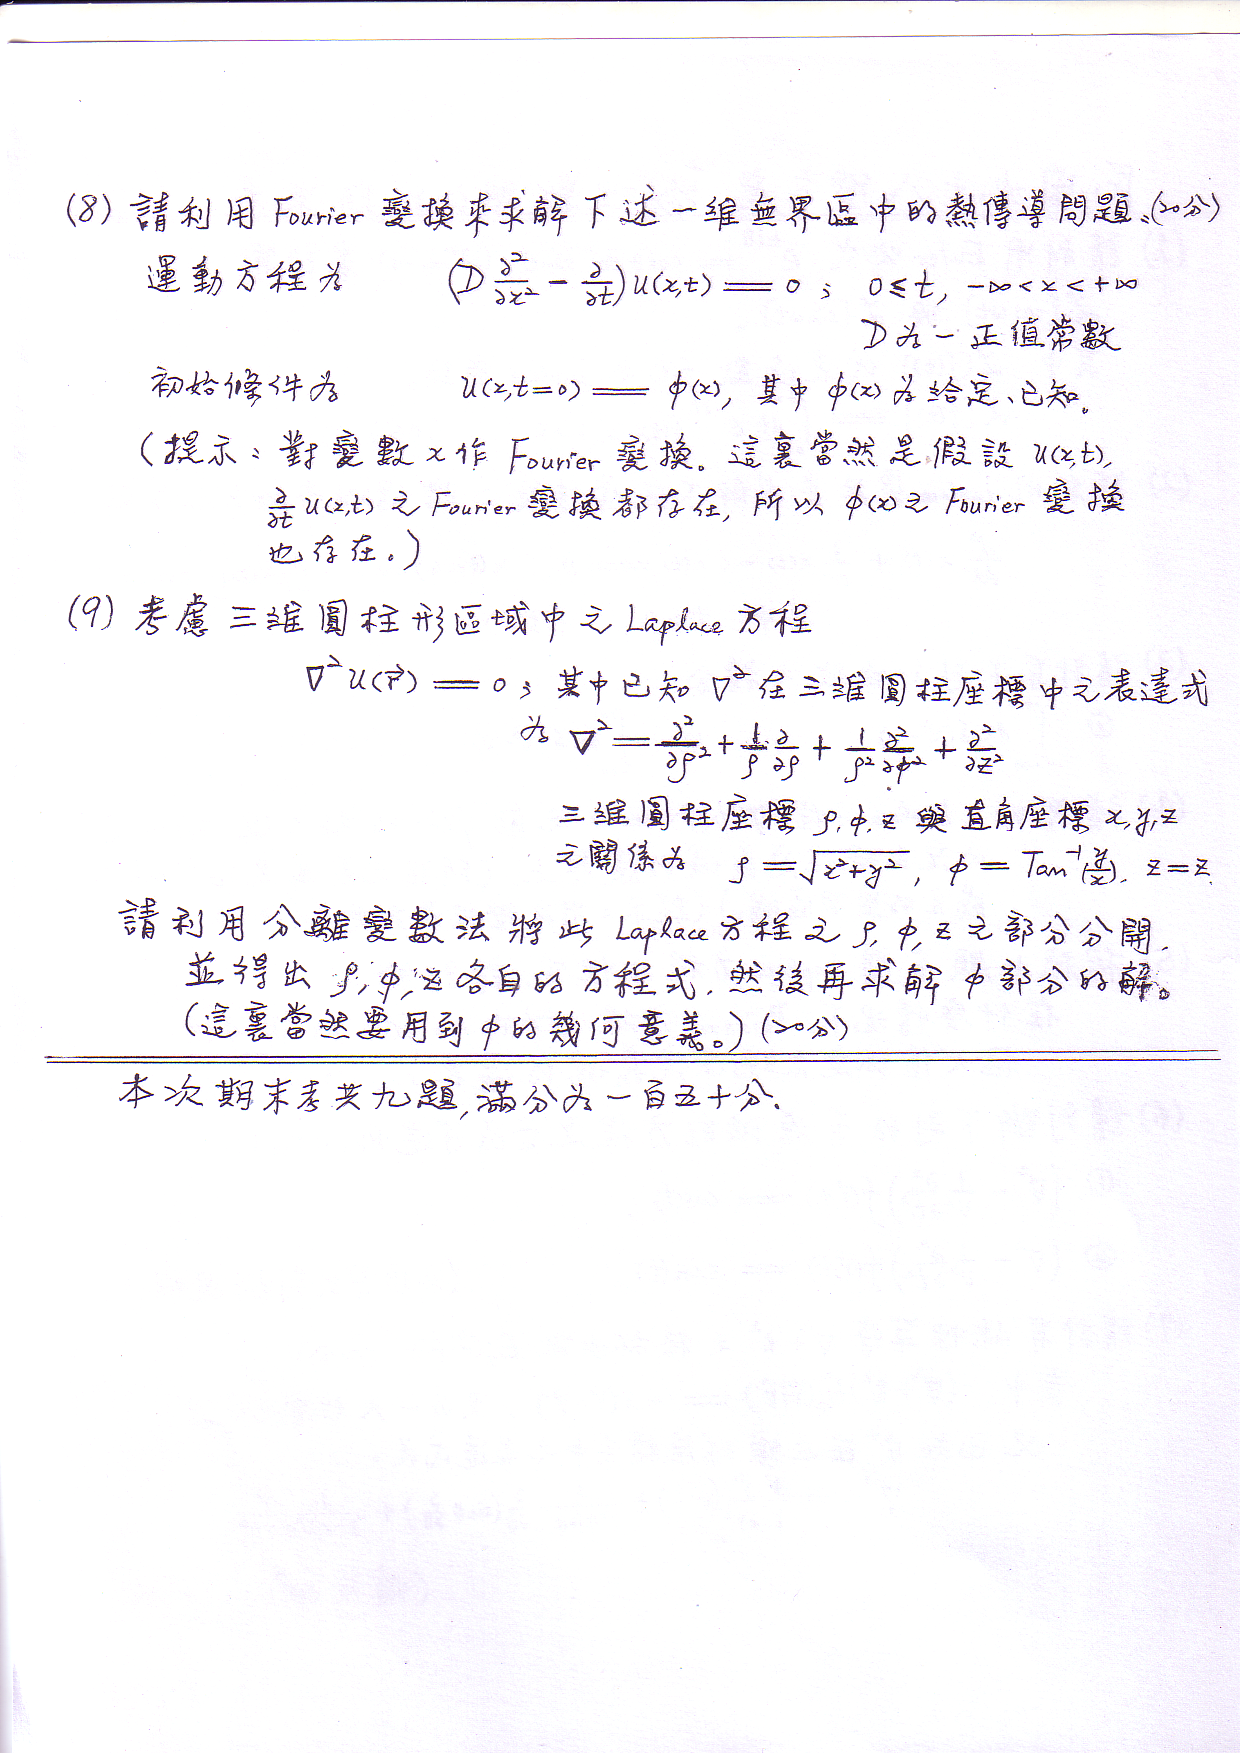 (8) 請利用 Fourier 變換來求解下述一維無界區中的熱傳導問題、(20分)
運動方程為 (D ∂²/∂x² - ∂/∂t) u(x,t) = 0 ; 0 ≤ t, -∞ < x < +∞
D為一正值常數
初始條件為 u(x,t=0) = φ(x), 其中 φ(x) 為給定、已知。
(提示：對變數 x 作 Fourier 變換。這裏當然是假設 u(x,t),
∂/∂t u(x,t) 之 Fourier 變換都存在, 所以 φ(x) 之 Fourier 變換
也存在。)
(9) 考慮三維圓柱形區域中之 Laplace 方程
∇² u(r⃗) = 0 ; 其中已知 ∇² 在三維圓柱座標中之表達式
為 ∇² = ∂²/∂ρ² + 1/ρ ∂/∂ρ + 1/ρ² ∂²/∂φ² + ∂²/∂z²
三維圓柱座標 ρ, φ, z 與直角座標 x, y, z
之關係為 ρ = √(x²+y²), φ = Tan⁻¹(y/x), z = z.
請利用分離變數法將此 Laplace 方程之 ρ, φ, z 之部分分開.
並得出 ρ, φ, z 各自的方程式. 然後再求解 φ 部分的解。
(這裏當然要用到 φ 的幾何意義。) (20分)
本次期末考共九題, 滿分為一百五十分.